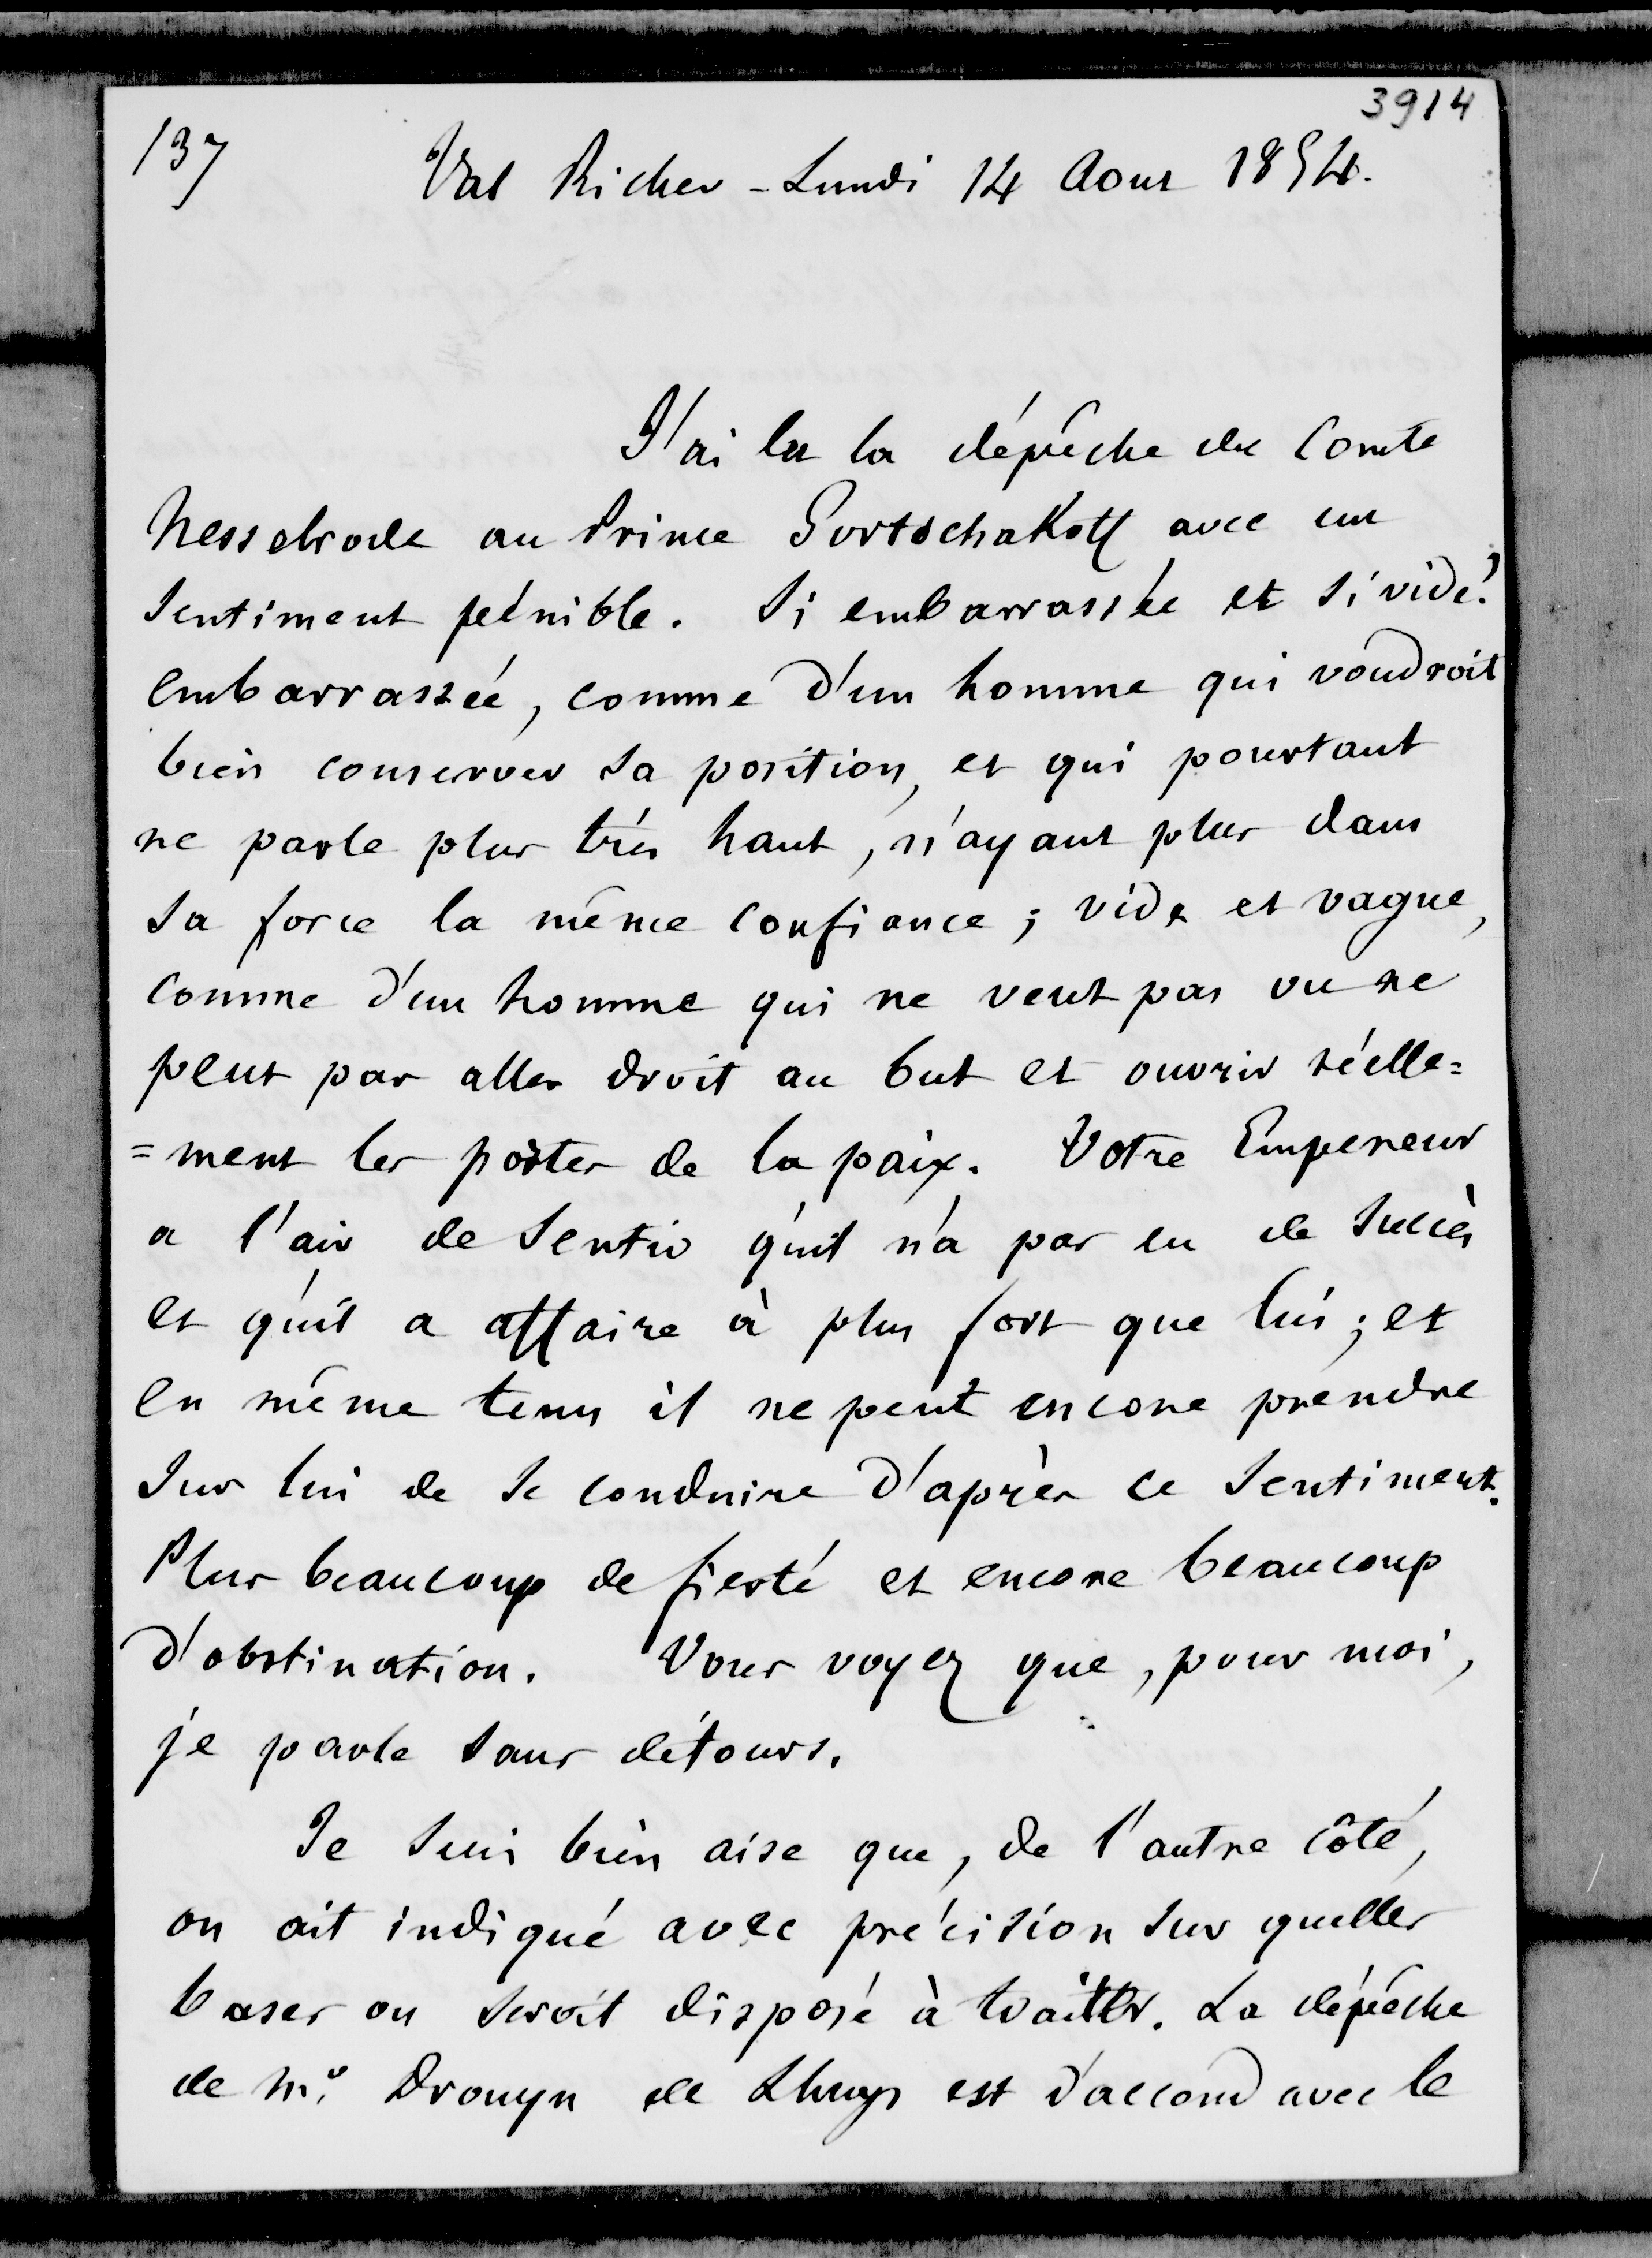 3914
137 Val Richer - Lundi 14 Aout 1854.
J'ai lu la dépêche du Comte
Nesselrode au Prince Gortschakoff avec un
sentiment pénible. Si embarrassée et si vide!
Embarrassée, comme d'un homme qui voudroit
bien conserver sa position, et qui pourtant
ne parle plus très haut, n'ayant plus dans
sa force la même confiance; vide et vague,
comme d'un homme qui ne veut pas ou ne
peut pas aller droit au but et ouvrir réelle=
=ment les portes de la paix. Votre Empereur
a l'air de sentir qu'il n'a pas eu de succès
et qu'il a affaire à plus fort que lui; et
en même tems il ne peut encore prendre
sur lui de se conduire d'après ce sentiment.
Plus beaucoup de fierté et encore beaucoup
d'obstination. Vous voyez que, pour moi,
je parle sans détours.
Je suis bien aise que, de l'autre côté,
on ait indiqué avec précision sur quelles
bases on seroit disposé à traiter. La dépêche
de Mr. Drouyn de Lhuys est d'accord avec le